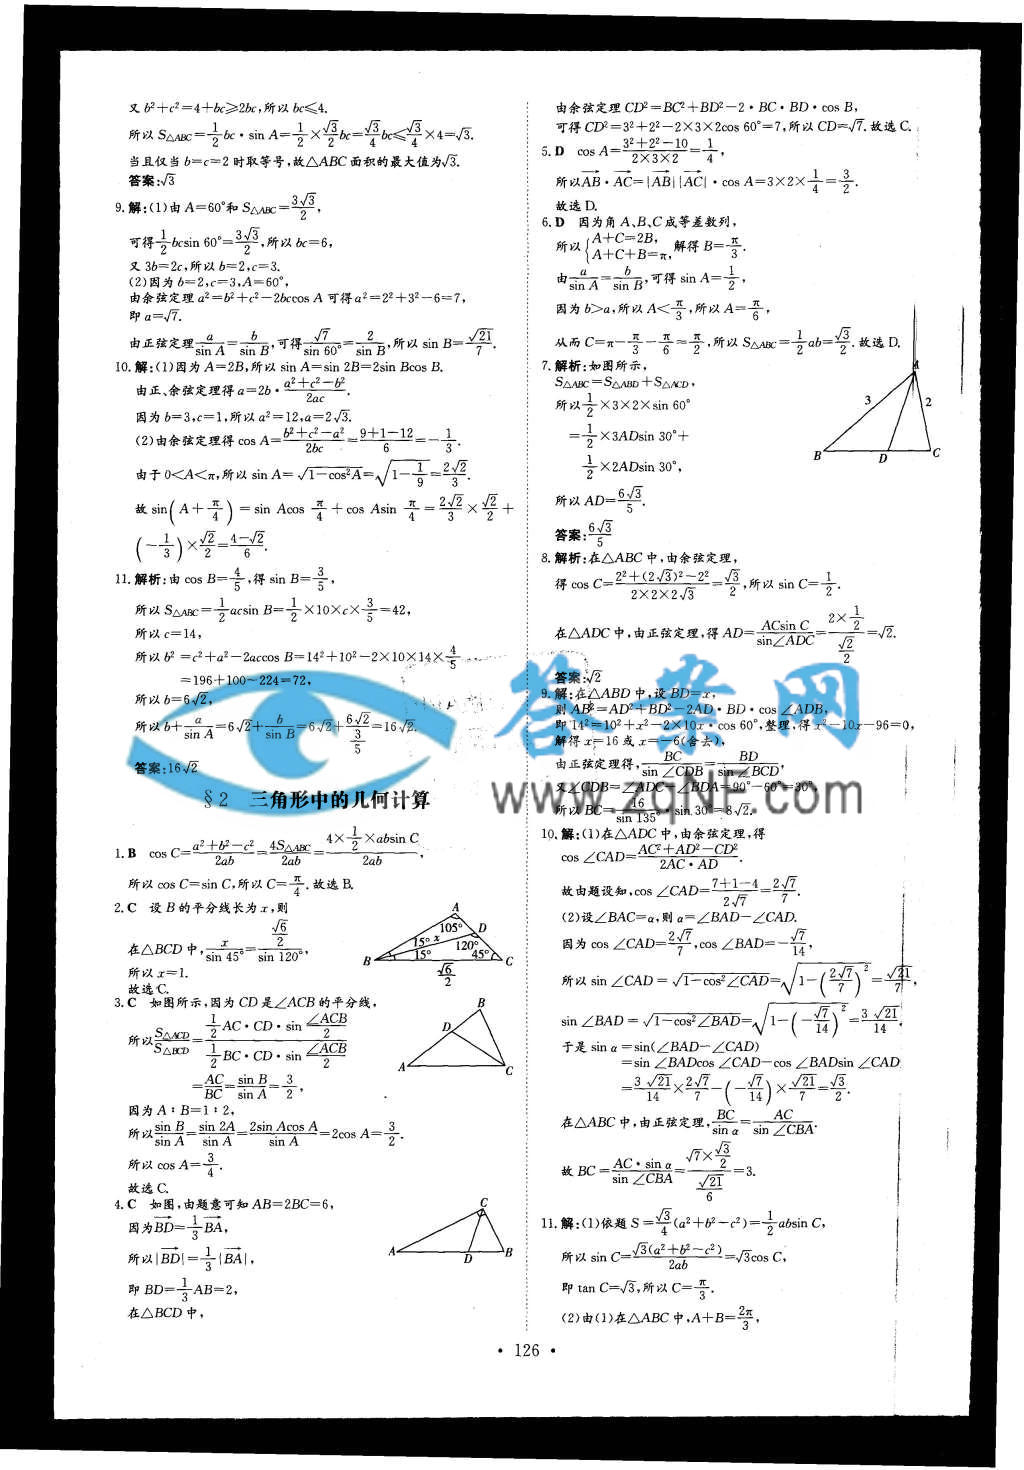 又 b²+c²=4+bc≥2bc,所以 bc≤4.
所以 S△ABC=1/2 bc·sin A=1/2×√3/2 bc=√3/4 bc≤√3/4×4=√3.
当且仅当 b=c=2 时取等号,故△ABC 面积的最大值为√3.
答案:√3
9.解:(1)由 A=60°和 S△ABC=3√3/2,
可得1/2 bcsin 60°=3√3/2,所以 bc=6,
又 3b=2c,所以 b=2,c=3.
(2)因为 b=2,c=3,A=60°,
由余弦定理 a²=b²+c²-2bccos A 可得 a²=2²+3²-6=7,
即 a=√7.
由正弦定理 a/sin A=b/sin B,可得√7/sin 60°=2/sin B,所以 sin B=√21/7.
10.解:(1)因为 A=2B,所以 sin A=sin 2B=2sin Bcos B.
由正、余弦定理得 a=2b·(a²+c²-b²)/2ac.
因为 b=3,c=1,所以 a²=12,a=2√3.
(2)由余弦定理得 cos A=(b²+c²-a²)/2bc=(9+1-12)/6=-1/3.
由于 0<A<π,所以 sin A=√(1-cos²A)=√(1-1/9)=2√2/3.
故 sin(A+π/4)=sin Acos π/4+cos Asin π/4=2√2/3×√2/2+
(-1/3)×√2/2=(4-√2)/6.
11.解析:由 cos B=4/5,得 sin B=3/5,
所以 S△ABC=1/2 acsin B=1/2×10×c×3/5=42,
所以 c=14,
所以 b²=c²+a²-2accos B=14²+10²-2×10×14×4/5
=196+100-224=72,
所以 b=6√2,
所以 b+a/sin A=6√2+b/sin B=6√2+6√2/(3/5)=16√2.
答案:16√2
§2 三角形中的几何计算
1.B cos C=(a²+b²-c²)/2ab=4S△ABC/2ab=(4×1/2×absin C)/2ab,
所以 cos C=sin C,所以 C=π/4.故选 B.
2.C 设 B 的平分线长为 x,则
在△BCD 中,x/sin 45°=(√6/2)/sin 120°,
所以 x=1.
故选 C.
A
105°
D
15° x
120°
B
15°
45°
C
√6/2
3.C 如图所示,因为 CD 是∠ACB 的平分线,
所以 S△ACD/S△BCD=(1/2 AC·CD·sin ∠ACB/2)/(1/2 BC·CD·sin ∠ACB/2)
=AC/BC=sin B/sin A=3/2,
因为 A:B=1:2,
所以 sin B/sin A=sin 2A/sin A=2sin Acos A/sin A=2cos A=3/2.
所以 cos A=3/4.
故选 C.
B
D
A
C
4.C 如图,由题意可知 AB=2BC=6,
因为BD→=1/3 BA→,
所以|BD→|=1/3|BA→|,
即 BD=1/3 AB=2,
在△BCD 中,
C
A
D
B
由余弦定理 CD²=BC²+BD²-2·BC·BD·cos B,
可得 CD²=3²+2²-2×3×2cos 60°=7,所以 CD=√7.故选 C.
5.D cos A=(3²+2²-10)/(2×3×2)=1/4,
所以AB→·AC→=|AB→||AC→|·cos A=3×2×1/4=3/2.
故选 D.
6.D 因为角 A、B、C 成等差数列,
所以{A+C=2B,
A+C+B=π, 解得 B=π/3.
由 a/sin A=b/sin B,可得 sin A=1/2,
因为 b>a,所以 A<π/3,所以 A=π/6,
从而 C=π-π/3-π/6=π/2,所以 S△ABC=1/2 ab=√3/2.故选 D.
7.解析:如图所示,
S△ABC=S△ABD+S△ACD,
所以1/2×3×2×sin 60°
=1/2×3ADsin 30°+
1/2×2ADsin 30°,
所以 AD=6√3/5.
答案:6√3/5
A
3
2
B
D
C
8.解析:在△ABC 中,由余弦定理,
得 cos C=(2²+(2√3)²-2²)/(2×2×2√3)=√3/2,所以 sin C=1/2.
在△ADC 中,由正弦定理,得 AD=ACsin C/sin∠ADC=(2×1/2)/(√2/2)=√2.
答案:√2
9.解:在△ABD 中,设 BD=x,
则 AB²=AD²+BD²-2AD·BD·cos ∠ADB,
即 14²=10²+x²-2×10x·cos 60°,整理,得 x²-10x-96=0,
解得 x=16 或 x=-6(舍去),
由正弦定理得,BC/sin ∠CDB=BD/sin ∠BCD,
又∠CDB=∠ADC-∠BDA=90°-60°=30°,
所以 BC=16/sin 135°·sin 30°=8√2.
10.解:(1)在△ADC 中,由余弦定理,得
cos ∠CAD=(AC²+AD²-CD²)/2AC·AD.
故由题设知,cos ∠CAD=(7+1-4)/2√7=2√7/7.
(2)设∠BAC=α,则 α=∠BAD-∠CAD.
因为 cos ∠CAD=2√7/7,cos ∠BAD=-√7/14,
所以 sin ∠CAD=√(1-cos²∠CAD)=√(1-(2√7/7)²)=√21/7,
sin ∠BAD=√(1-cos²∠BAD)=√(1-(-√7/14)²)=3√21/14.
于是 sin α=sin(∠BAD-∠CAD)
=sin ∠BADcos ∠CAD-cos ∠BADsin ∠CAD
=3√21/14×2√7/7-(-√7/14)×√21/7=√3/2.
在△ABC 中,由正弦定理,BC/sin α=AC/sin ∠CBA.
故 BC=AC·sin α/sin ∠CBA=(√7×√3/2)/(√21/6)=3.
11.解:(1)依题 S=√3/4(a²+b²-c²)=1/2 absin C,
所以 sin C=√3(a²+b²-c²)/2ab=√3cos C,
即 tan C=√3,所以 C=π/3.
(2)由(1)在△ABC 中,A+B=2π/3,
答案网
www.zqnf.com
· 126 ·